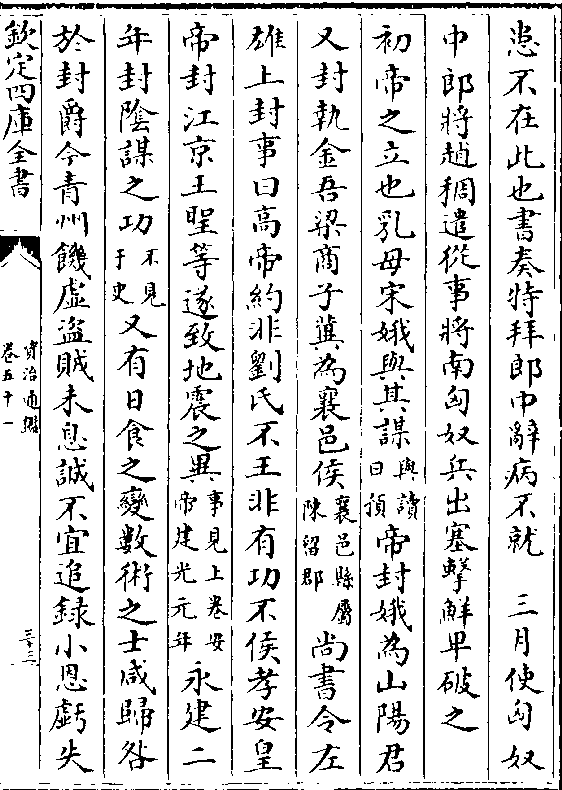 患不在此也書奏特拜郎中辭病不就　三月使匈奴
中郎將趙稠遣從事將南匈奴兵出塞擊鮮卑破之
初帝之立也乳母宋娥與其謀與讀曰預帝封娥為山陽君
又封執金吾梁商子兾為襄邑侯襄邑縣屬陳留郡尚書令左
雄上封事曰高帝約非劉氏不王非有功不侯孝安皇
帝封江京王聖等遂致地震之異事見上卷安帝建光元年永建二
年封隂謀之功不見于史又有日食之變數術之士咸歸咎
於封爵今青州饑虚盗賊未息誠不宜追録小恩虧失
欽定四庫全書
資治通鑑
卷五十一
三十三